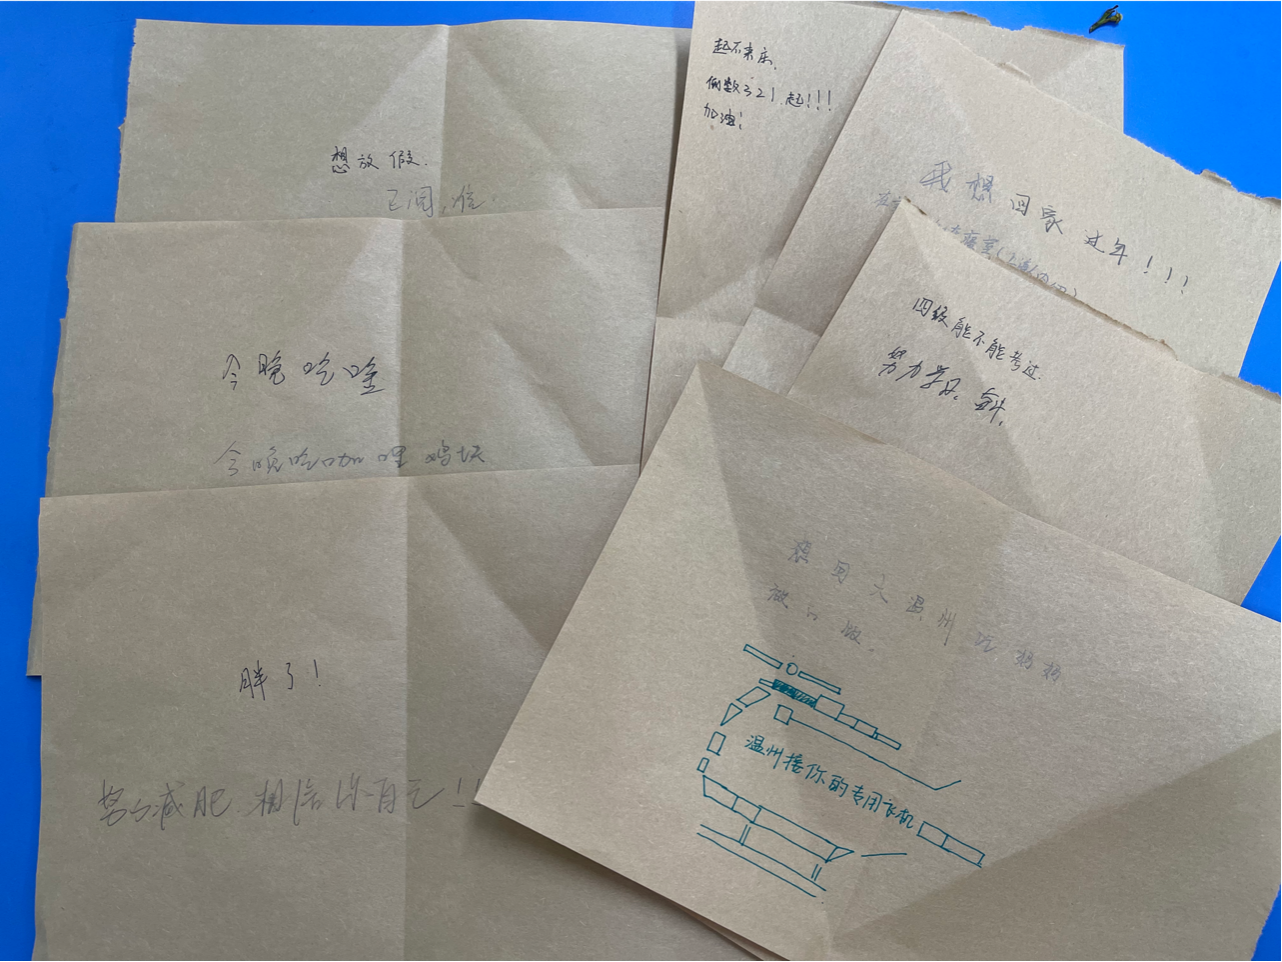 想放假.
已阅,准.
今晚吃啥
今晚吃咖喱鸡块
胖了!
努力减肥.相信你自己!!
起不来床,
倒数321,起!!!
加油!
我想回家过年!!!
四级能不能考过.
努力学习,
想回大温州吃妈妈
做的饭.
温州接你的专用飞机